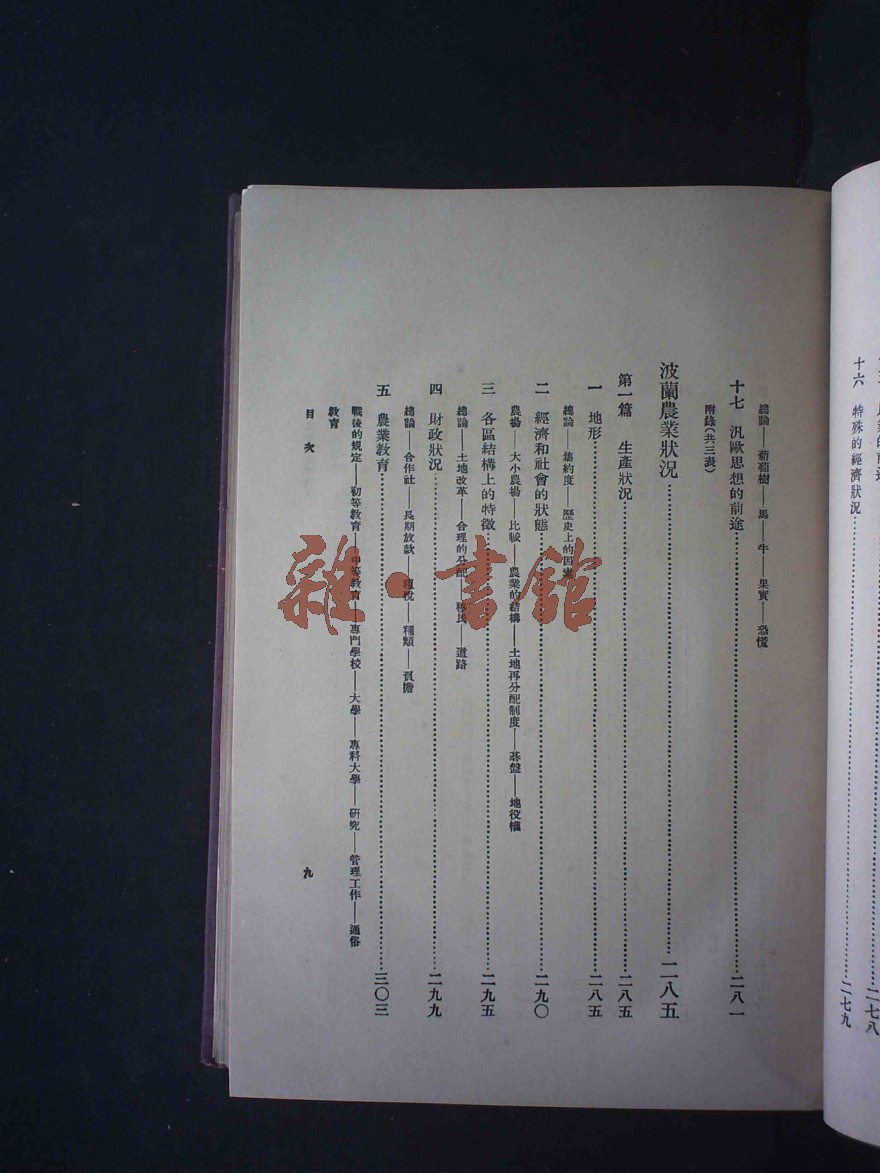 十五
十六 特殊的經濟狀況……二七九
二七八
總論——葡萄樹——馬——牛——果實——恐慌
十七 汎歐思想的前途……二八一
附錄(共三表)
波蘭農業狀況……二八五
第一篇 生產狀況……二八五
一 地形……二八五
總論——集約度——歷史上的因素
二 經濟和社會的狀態……二九〇
農場——大小農場——比較——農業的結構——土地再分配制度——碁盤——地役權
三 各區結構上的特徵……二九五
總論——土地改革——合理的分配——移民——道路
四 財政狀況……二九九
總論——合作社——長期放款——種類——負擔
五 農業教育……三〇三
戰後的規定——初等教育——中等教育——專門學校——大學——專科大學——研究——管理工作——通俗
教育
目次
九
雜·書館